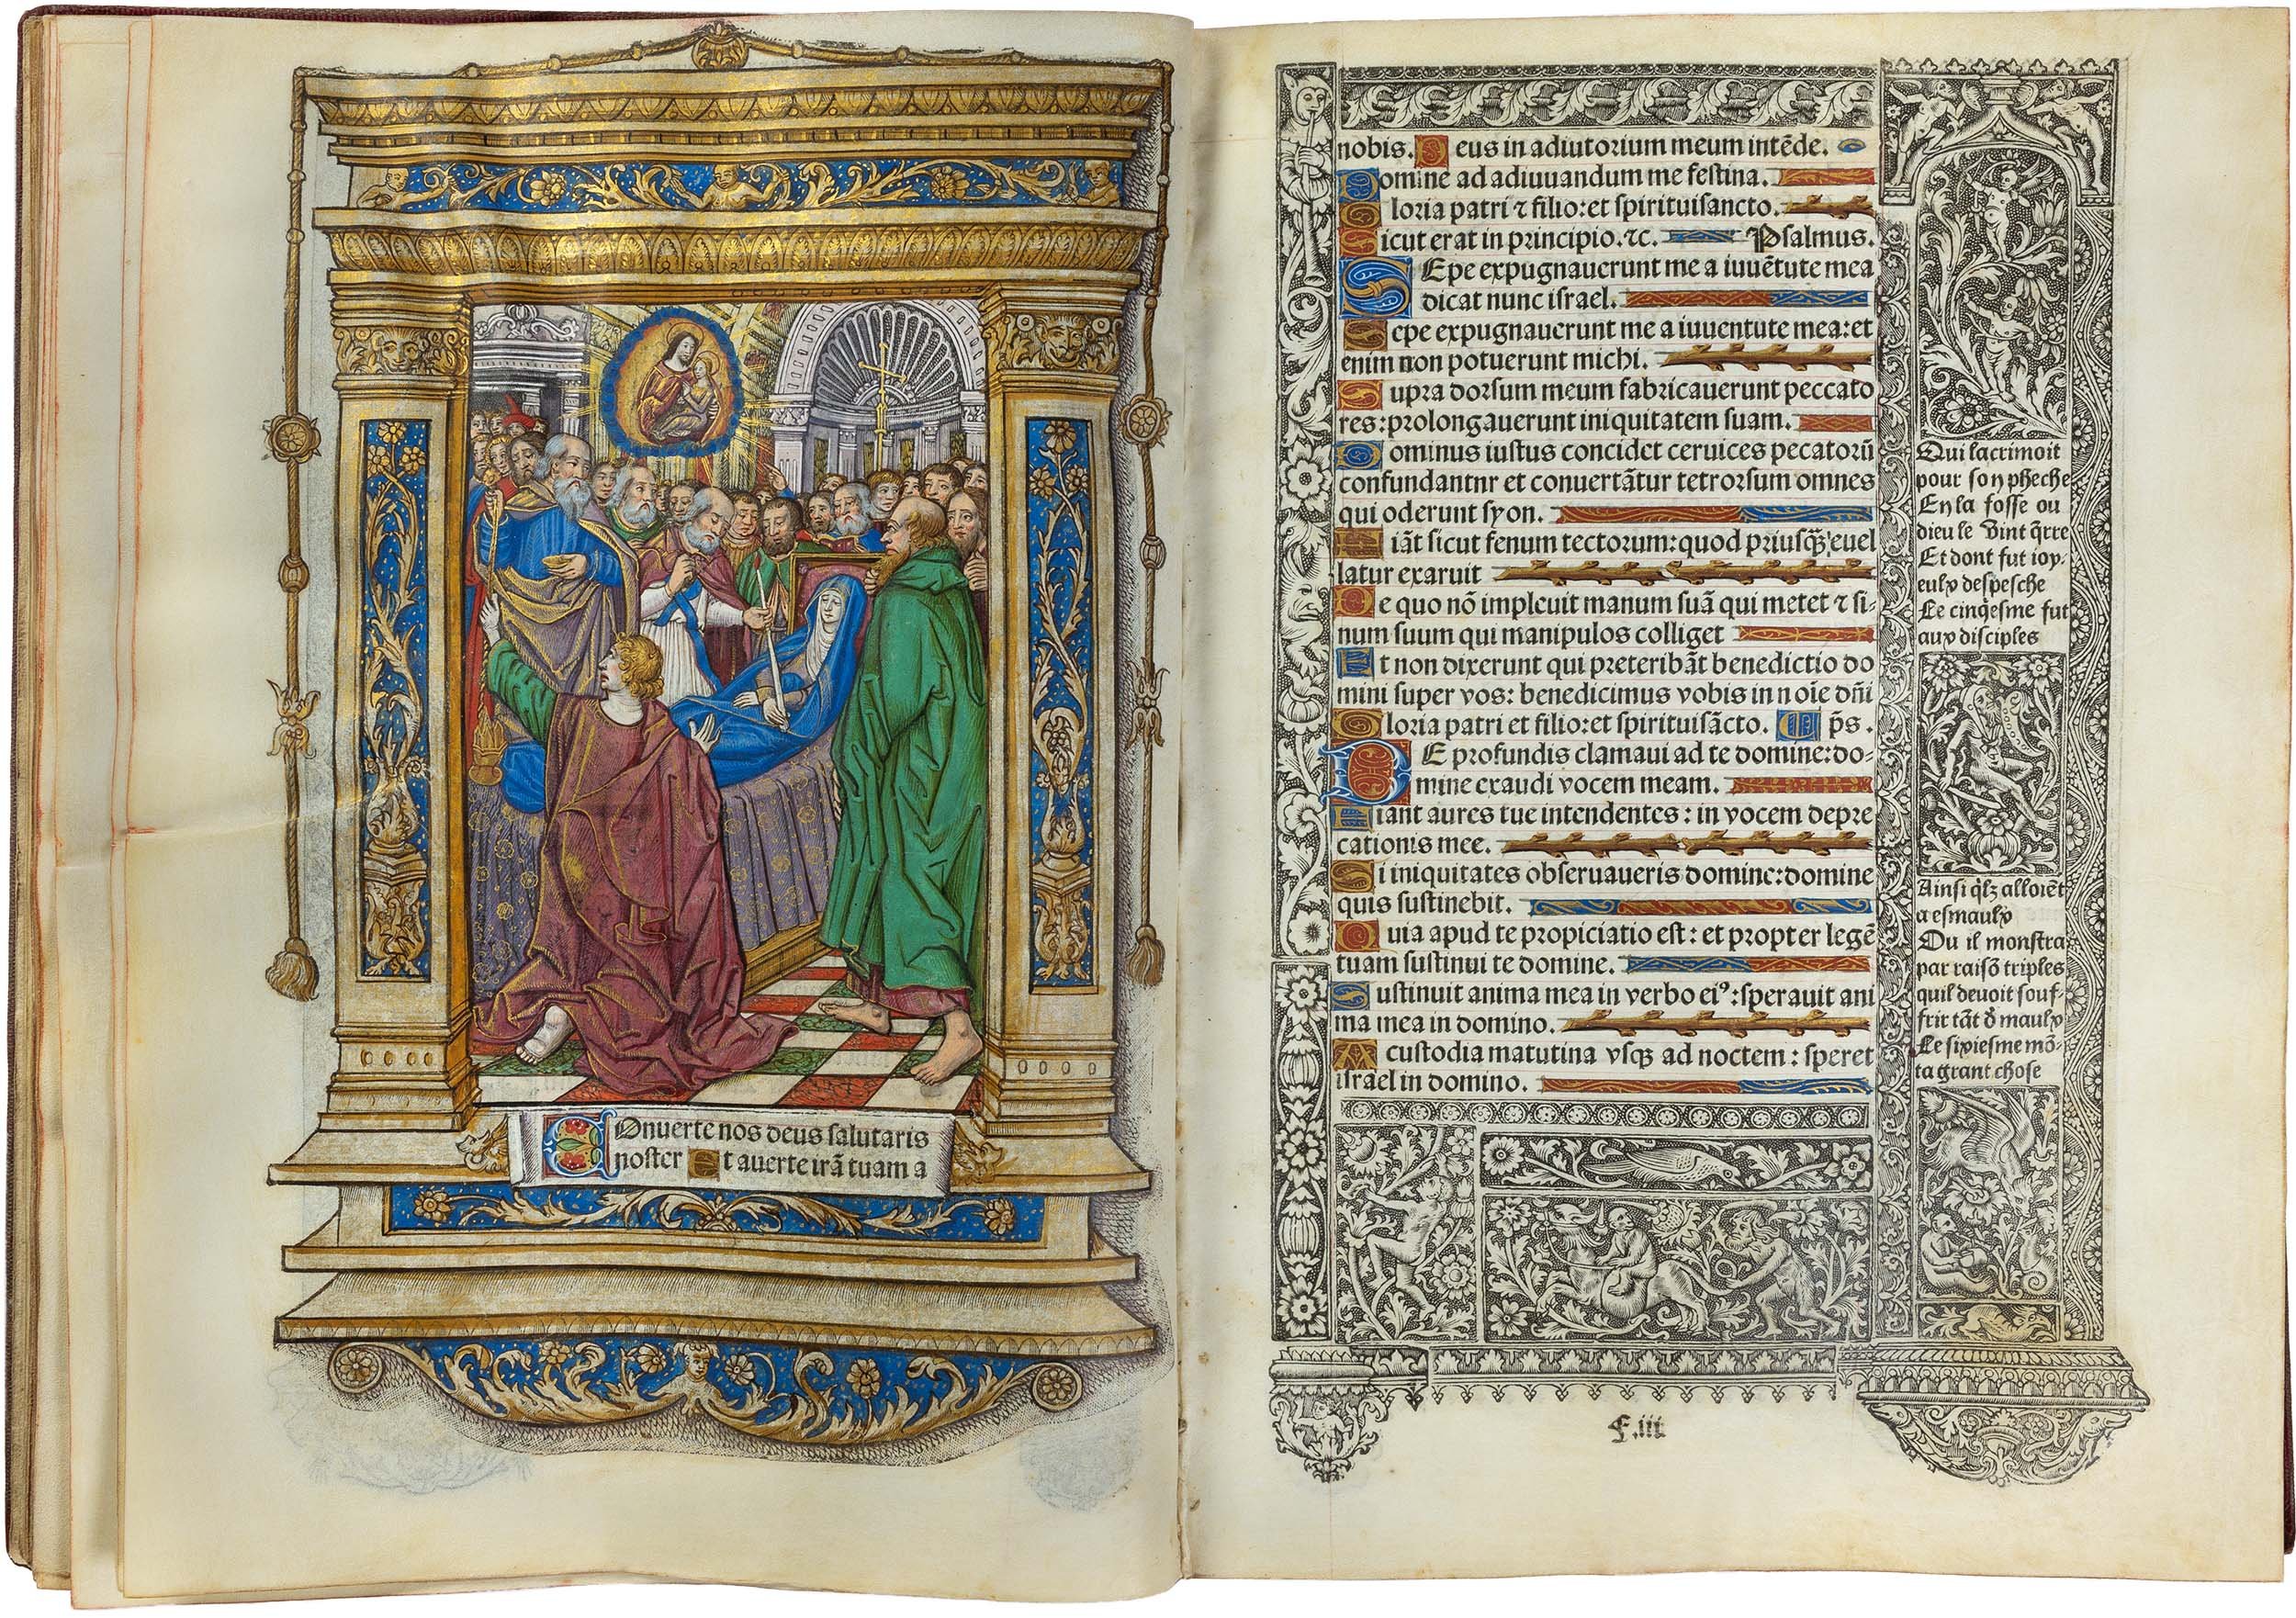 Conuerte nos deus salutaris
noster Et auerte irã tuam a
nobis. Deus in adiutorium meum intẽde.
Domine ad adiuuandum me festina.
Gloria patri ⁊ filio:et spirituisancto.
Sicut erat in principio.⁊c. Psalmus.
SEpe expugnauerunt me a iuuẽtute mea
dicat nunc israel.
Sepe expugnauerunt me a iuuentute mea:et
enim non potuerunt michi.
Supra dorsum meum fabricauerunt peccato
res:prolongauerunt iniquitatem suam.
Dominus iustus concidet ceruices pecatorũ
confundantnr et conuertãtur tetrorsum omnes
qui oderunt syon.
Fiãt sicut fenum tectorum:quod priusq̃ȝ euel
latur exaruit
De quo nõ impleuit manum suã qui metet ⁊ si-
num suum qui manipulos colliget
Et non dixerunt qui preteribãt benedictio do
mini super vos: benedicimus vobis in noĩe dñi
Gloria patri et filio:et spirituisãcto. p̃s.
DE profundis clamaui ad te domine:do-
mine exaudi vocem meam.
Fiant aures tue intendentes: in vocem depre
cationis mee.
Si iniquitates obseruaueris domine:domine
quis sustinebit.
Quia apud te propiciatio est: et propter legẽ
tuam sustinui te domine.
Sustinuit anima mea in verbo eiꝰ:sperauit ani
ma mea in domino.
A custodia matutina vsqȝ ad noctem: speret
israel in domino.
Qui lacrimoit
pour son pheche
En la fosse ou
dieu le vint q̃rre
Et dont fut ioy-
eulx despesche
Le cinqẽsme fut
aux disciples
Ainsi q̃lz alloiẽt
a esmaulx
Ou il monstra
par raisõ triples
quil deuoit souf-
frir tãt d̃ maulx
Le sixiesme mõ-
ta grant chose
F.iii